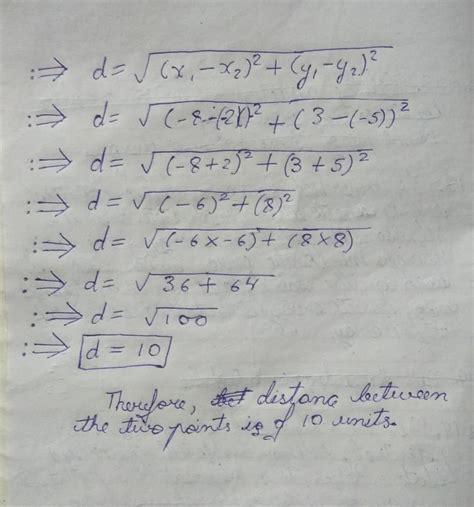 :⇒ d = √(x₁ - x₂)² + (y₁ - y₂)²
:⇒ d = √(-8 - (-2))² + (3 - (-5))²
:⇒ d = √(-8+2)² + (3+5)²
:⇒ d = √(-6)² + (8)²
:⇒ d = √(-6×-6) + (8×8)
:⇒ d = √36 + 64
:⇒ d = √100
:⇒ d = 10
Therefore, distanc between
the two points is of 10 units.